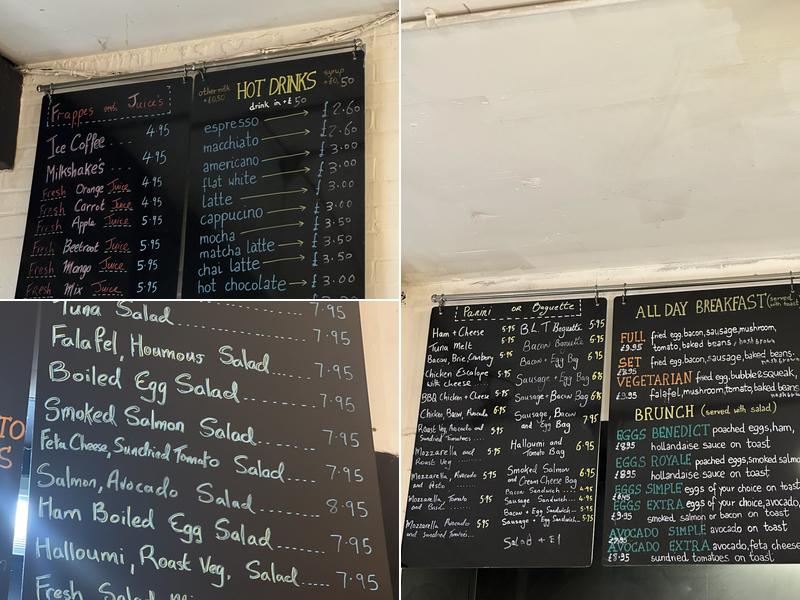 Frappes and Juice's
Ice Coffee 4.95
Milkshake's 4.95
Fresh Orange Juice 4.95
Fresh Carrot Juice 4.95
Fresh Apple Juice 5.95
Fresh Beetroot Juice 5.95
Fresh Mango Juice 5.95
Fresh Mix Juice 5.95
other milk +£0.50
HOT DRINKS
syrup +£0.50
drink in +£ 50
espresso £2.60
macchiato £2.60
americano £3.00
flat white £3.00
latte £3.00
cappucino £3.00
mocha £3.50
matcha latte £3.50
chai latte £3.50
hot chocolate £3.00
Tuna Salad 7.95
Falafel, Houmous Salad 7.95
Boiled Egg Salad 7.95
Smoked Salmon Salad 7.95
Feta Cheese, Sundried Tomato Salad 7.95
Salmon, Avocado Salad 8.95
Ham Boiled Egg Salad 7.95
Halloumi, Roast Veg. Salad 7.95
Fresh Salad
TO
S
Panini OR Baguette
Ham + Cheese 5.95
Tuna Melt 5.95
Bacon, Brie, Cranbery 5.95
Chicken Escalope with cheese 5.95
BBQ Chicken + Cheese 5.95
Chicken, Bacon, Avocado 5.95
Roast Veg, Avocado and Sundried Tomatoes 5.95
Mozzarella and Roast Veg 5.95
Mozzarella, Avocado and Pesto 5.95
Mozzarella, Tomato and Basil 5.95
Mozzarella Avocado and sundried Tomatoes 5.95
B.L.T Baguette 5.95
Bacon Baguette 5.95
Bacon + Egg Bag 6.95
Sausage + Egg Bag
Sausage + Bacon Bag
Sausage, Bacon and Egg Bag 7.95
Halloumi and Tomato Bag 6.95
Smoked Salmon and Cream Cheese Bag 6.95
Bacon Sandwich 4.95
Sausage Sandwich 4.95
Bacon + Egg Sandwich 5.95
Sausage + Egg Sandwich 5.95
Salad + £1
ALL DAY BREAKFAST (served with toast)
FULL fried egg, bacon, sausage, mushroom,
£9.95 tomato, baked beans, hash brown
SET fried egg, bacon, sausage, baked beans,
£8.95 hash brown
VEGETARIAN fried egg, bubble & squeak,
£9.95 falafel, mushroom, tomato, baked beans
BRUNCH (served with salad)
EGGS BENEDICT poached eggs, ham,
£8.95 hollandaise sauce on toast
EGGS ROYALE poached eggs, smoked salmo
£8.95 hollandaise sauce on toast
EGGS SIMPLE eggs of your choice on toast
EGGS EXTRA eggs of your choice, avocado,
£9.95 smoked salmon or bacon on toast
AVOCADO SIMPLE avocado on toast
AVOCADO EXTRA avocado, feta cheese
£8.95 sundried tomatoes on toast